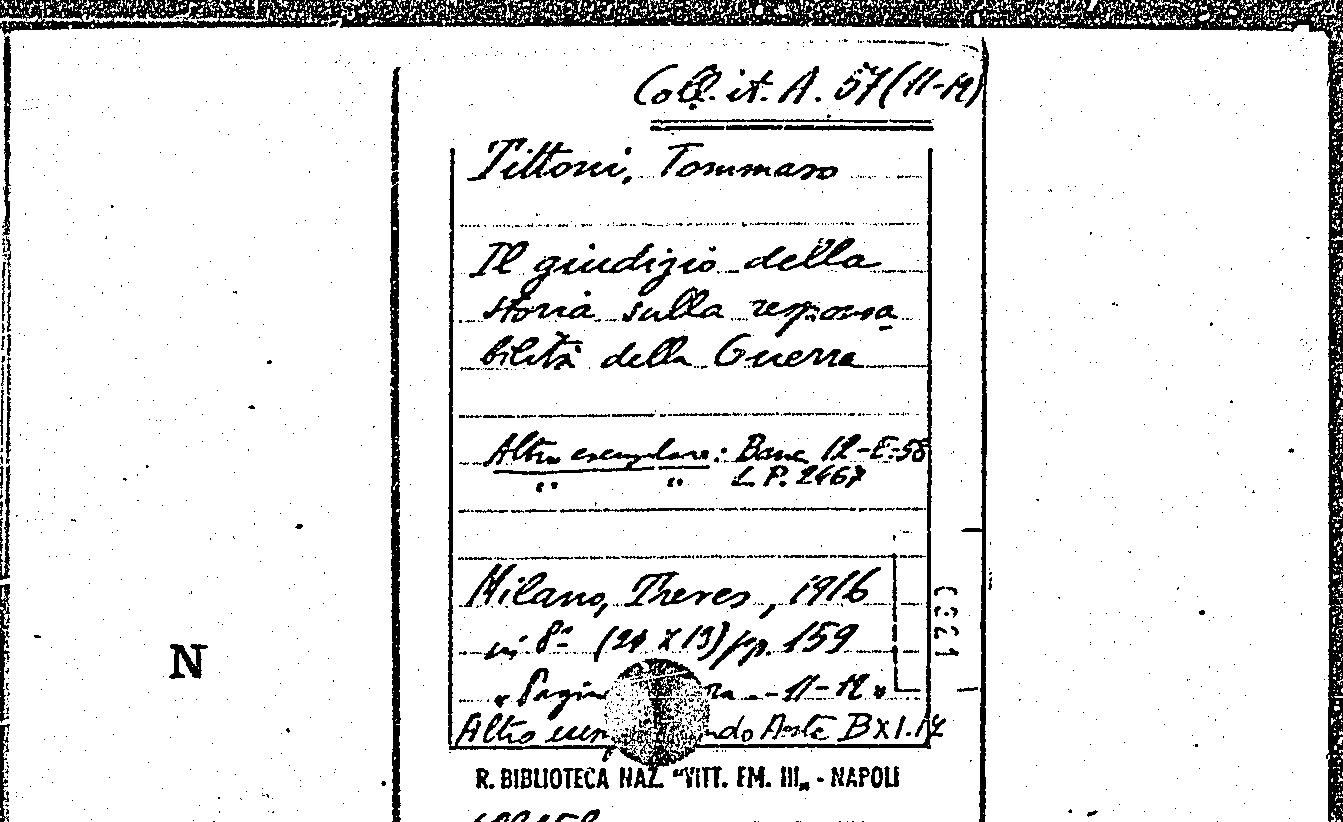 Coll. it. A. 57 (11-12)
Tittoni, Tommaso
Il giudizio della
storia sulla responsa
bilità della Guerra
Altro esemplare: Banc. 12-E-58
" " L.P. 2467
Milano, Treves, 1916
in 8° (24 x 13) pp. 159
" Pagin ra - 11-12 "
Altro esem ndo Aste B X 1.17
R. BIBLIOTECA NAZ. "VITT. EM. III„ - NAPOLI
N